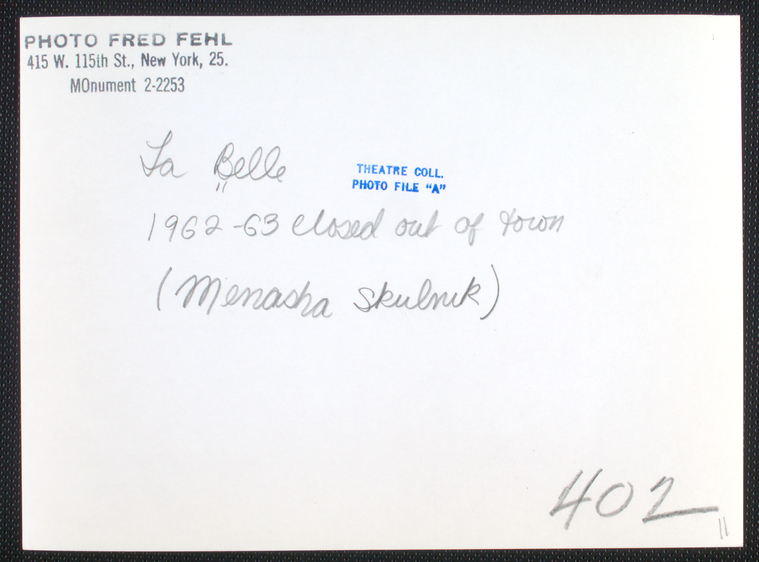 PHOTO FRED FEHL
415 W. 115th St., New York, 25.
MOnument 2-2253
La Belle
THEATRE COLL.
PHOTO FILE "A"
1962-63 closed out of town
(Menasha Skulnik)
402